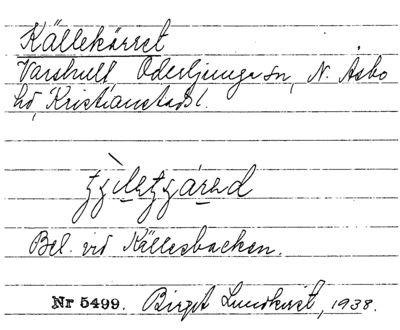 Källekärret
Varshult Oderljunga sn, N. Åsbo
hd, Kristianstads l.
Bel. vid Källesbacken.
Nr 5499. Birgit Lundkvist, 1938.